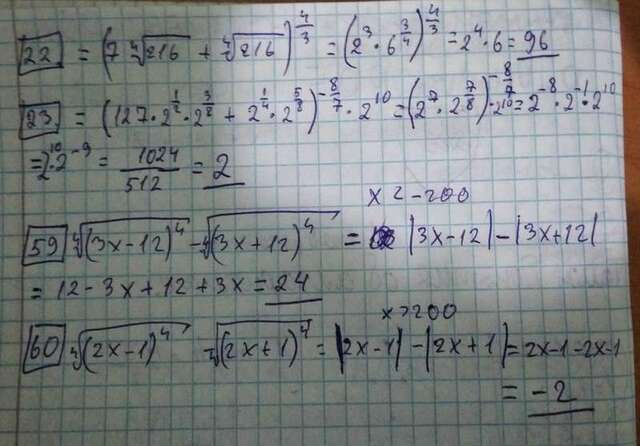 22 = (7 ∜216 + ∜216)^(4/3) = (2^3 · 6^(3/4))^(4/3) = 2^4 · 6 = 96
23 = (127 · 2^(1/2) · 2^(3/8) + 2^(1/4) · 2^(5/8))^(-8/7) · 2^10 = (2^7 · 2^(7/8))^(-8/7) · 2^10 = 2^-8 · 2^-1 · 2^10
= 2^10 · 2^-9 = 1024/512 = 2
x < -200
59 ∜(3x-12)^4 - ∜(3x+12)^4 = |3x-12| - |3x+12|
= 12 - 3x + 12 + 3x = 24
x > 200
60 ∜(2x-1)^4 ∜(2x+1)^4 = |2x-1| - |2x+1| = 2x-1-2x-1
= -2